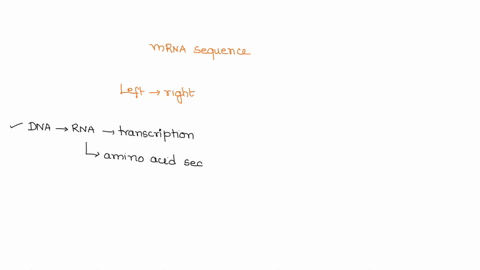 mRNA sequence
Left → right
✓ DNA → RNA → transcription
↳ amino acid sec